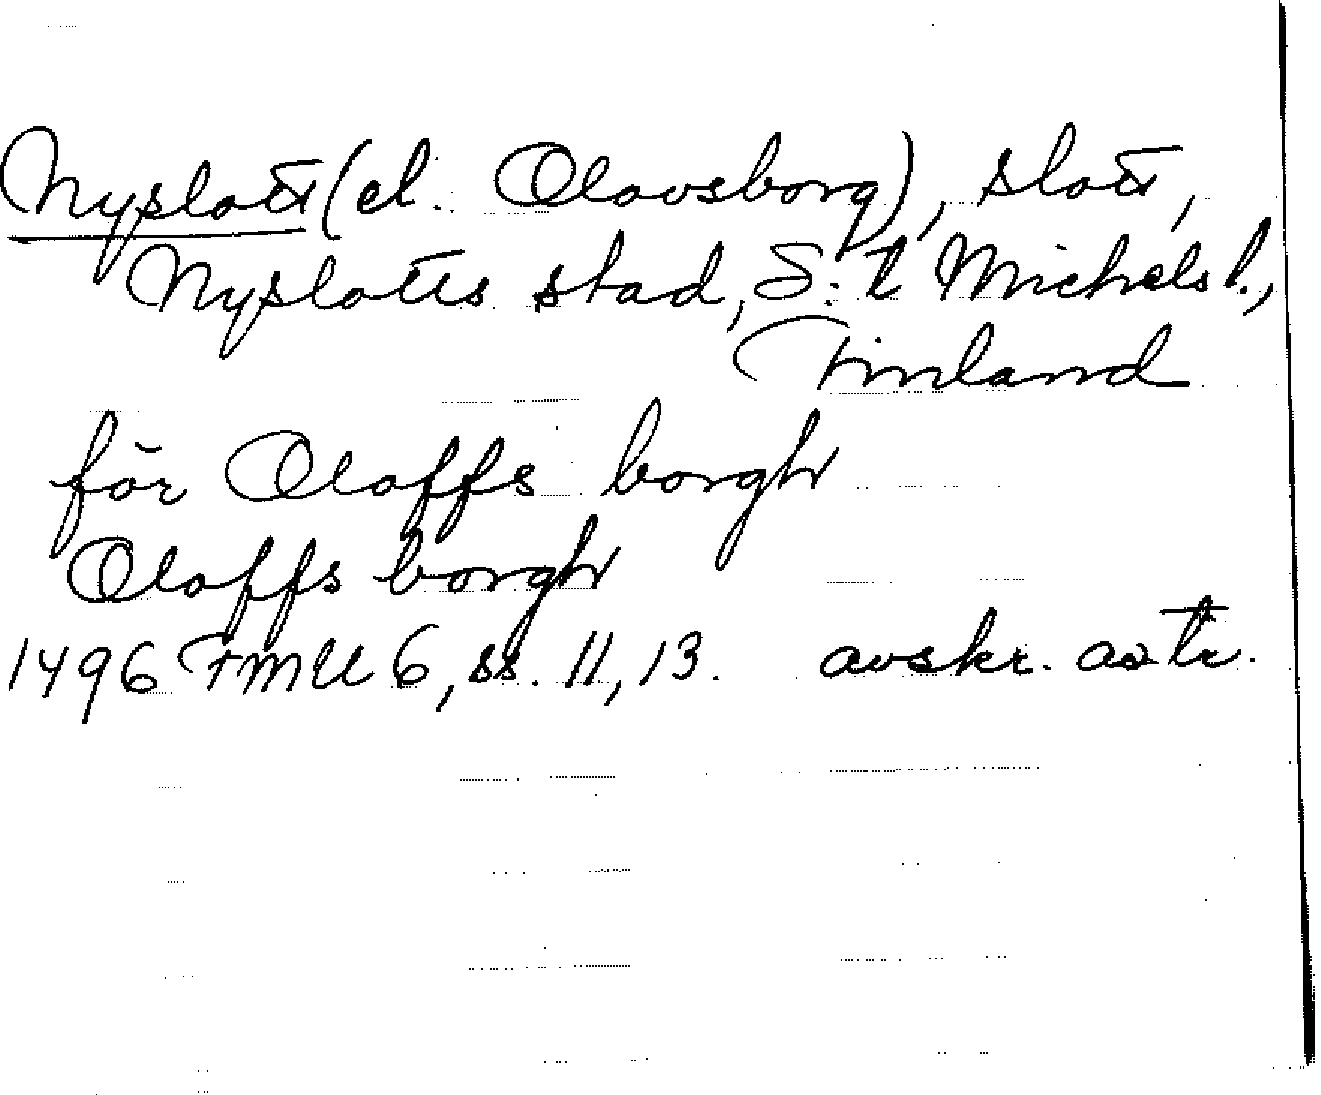 Nyslott (el. Olovsborg), slott,
Nyslotts stad, S:t Michels l.,
Finland
för Oloffs borgh
Oloffs borgh
1496 FMU 6, ss. 11, 13. avskr. av tr.